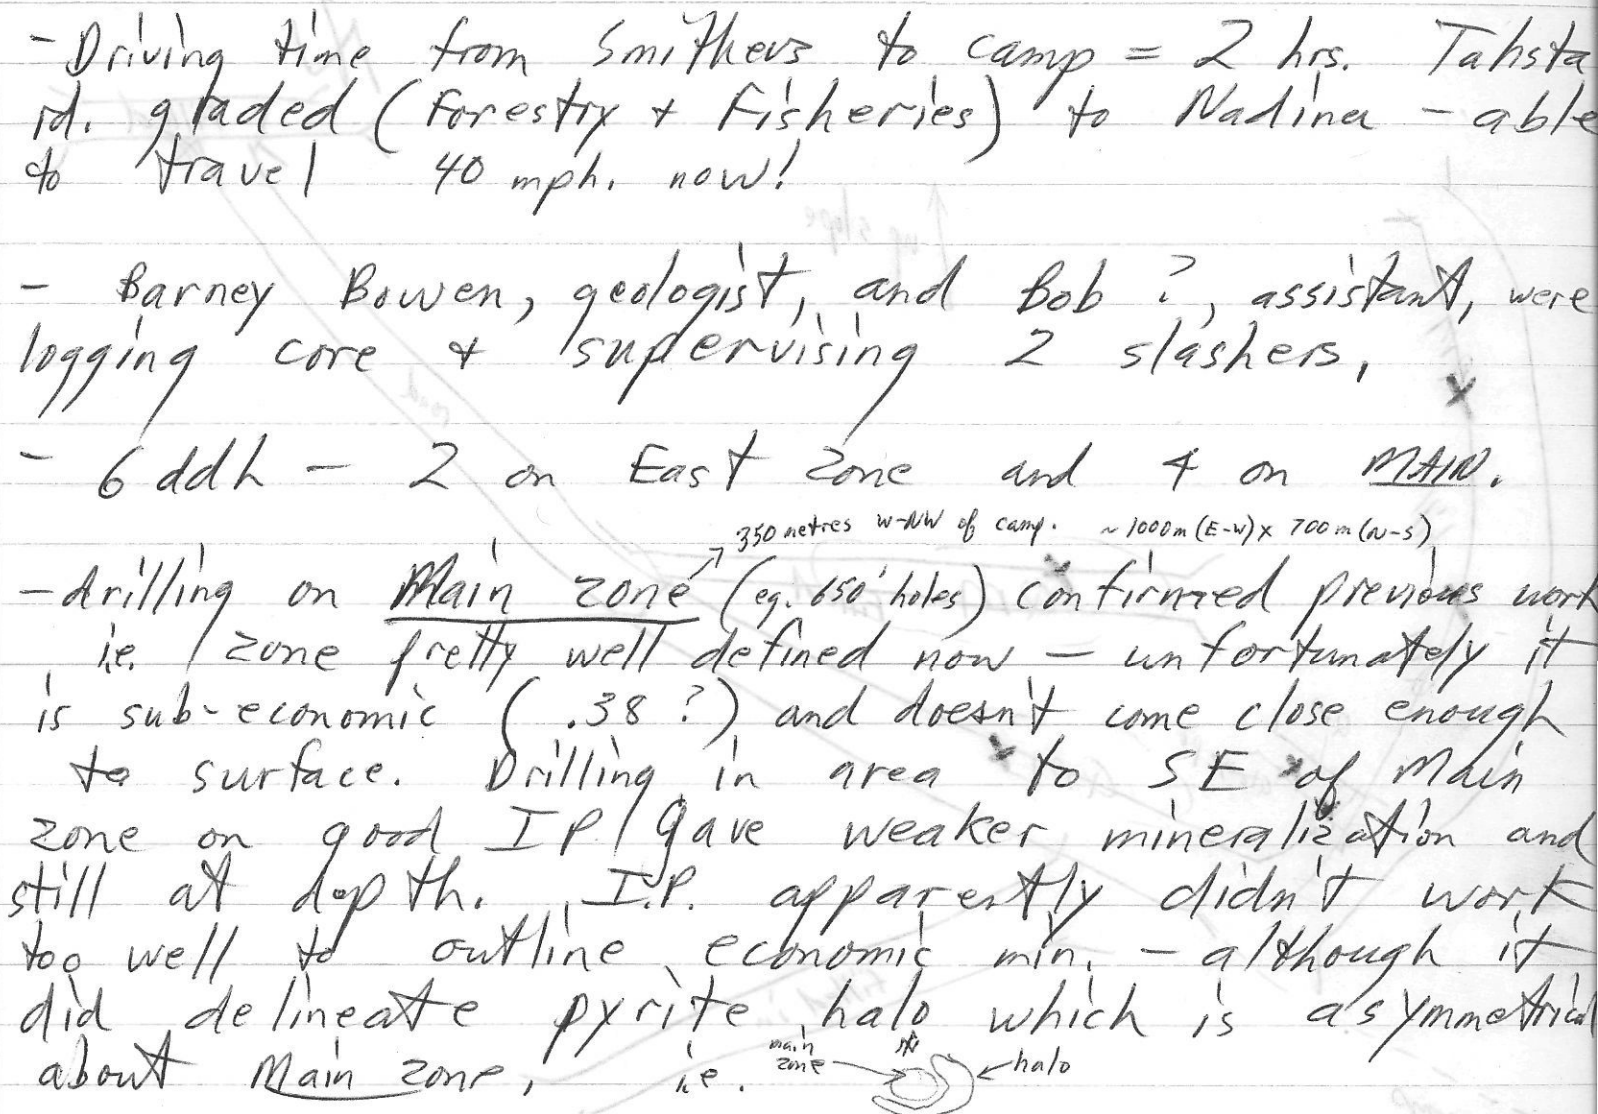 - Driving time from Smithers to camp = 2 hrs. Tahsta
rd. graded (Forestry + Fisheries) to Nadina - able
to travel 40 mph. now!
- Barney Bowen, geologist, and Bob ?, assistant, were
logging core + supervising 2 slashers,
- 6 ddh - 2 on East zone and 4 on MAIN.
350 metres W-NW of camp. ~1000m (E-W) x 700m (N-S)
- drilling on Main zone (eg. 650' holes) confirmed previous work
i.e. zone pretty well defined now - unfortunately it
is sub-economic (.38 ?) and doesn't come close enough
to surface. Drilling in area to SE of Main
zone on good IP gave weaker mineralization and
still at depth. I.P. apparently didn't work
too well to outline economic min. - although it
did delineate pyrite halo which is asymmetrical
about Main zone, i.e. main zone halo